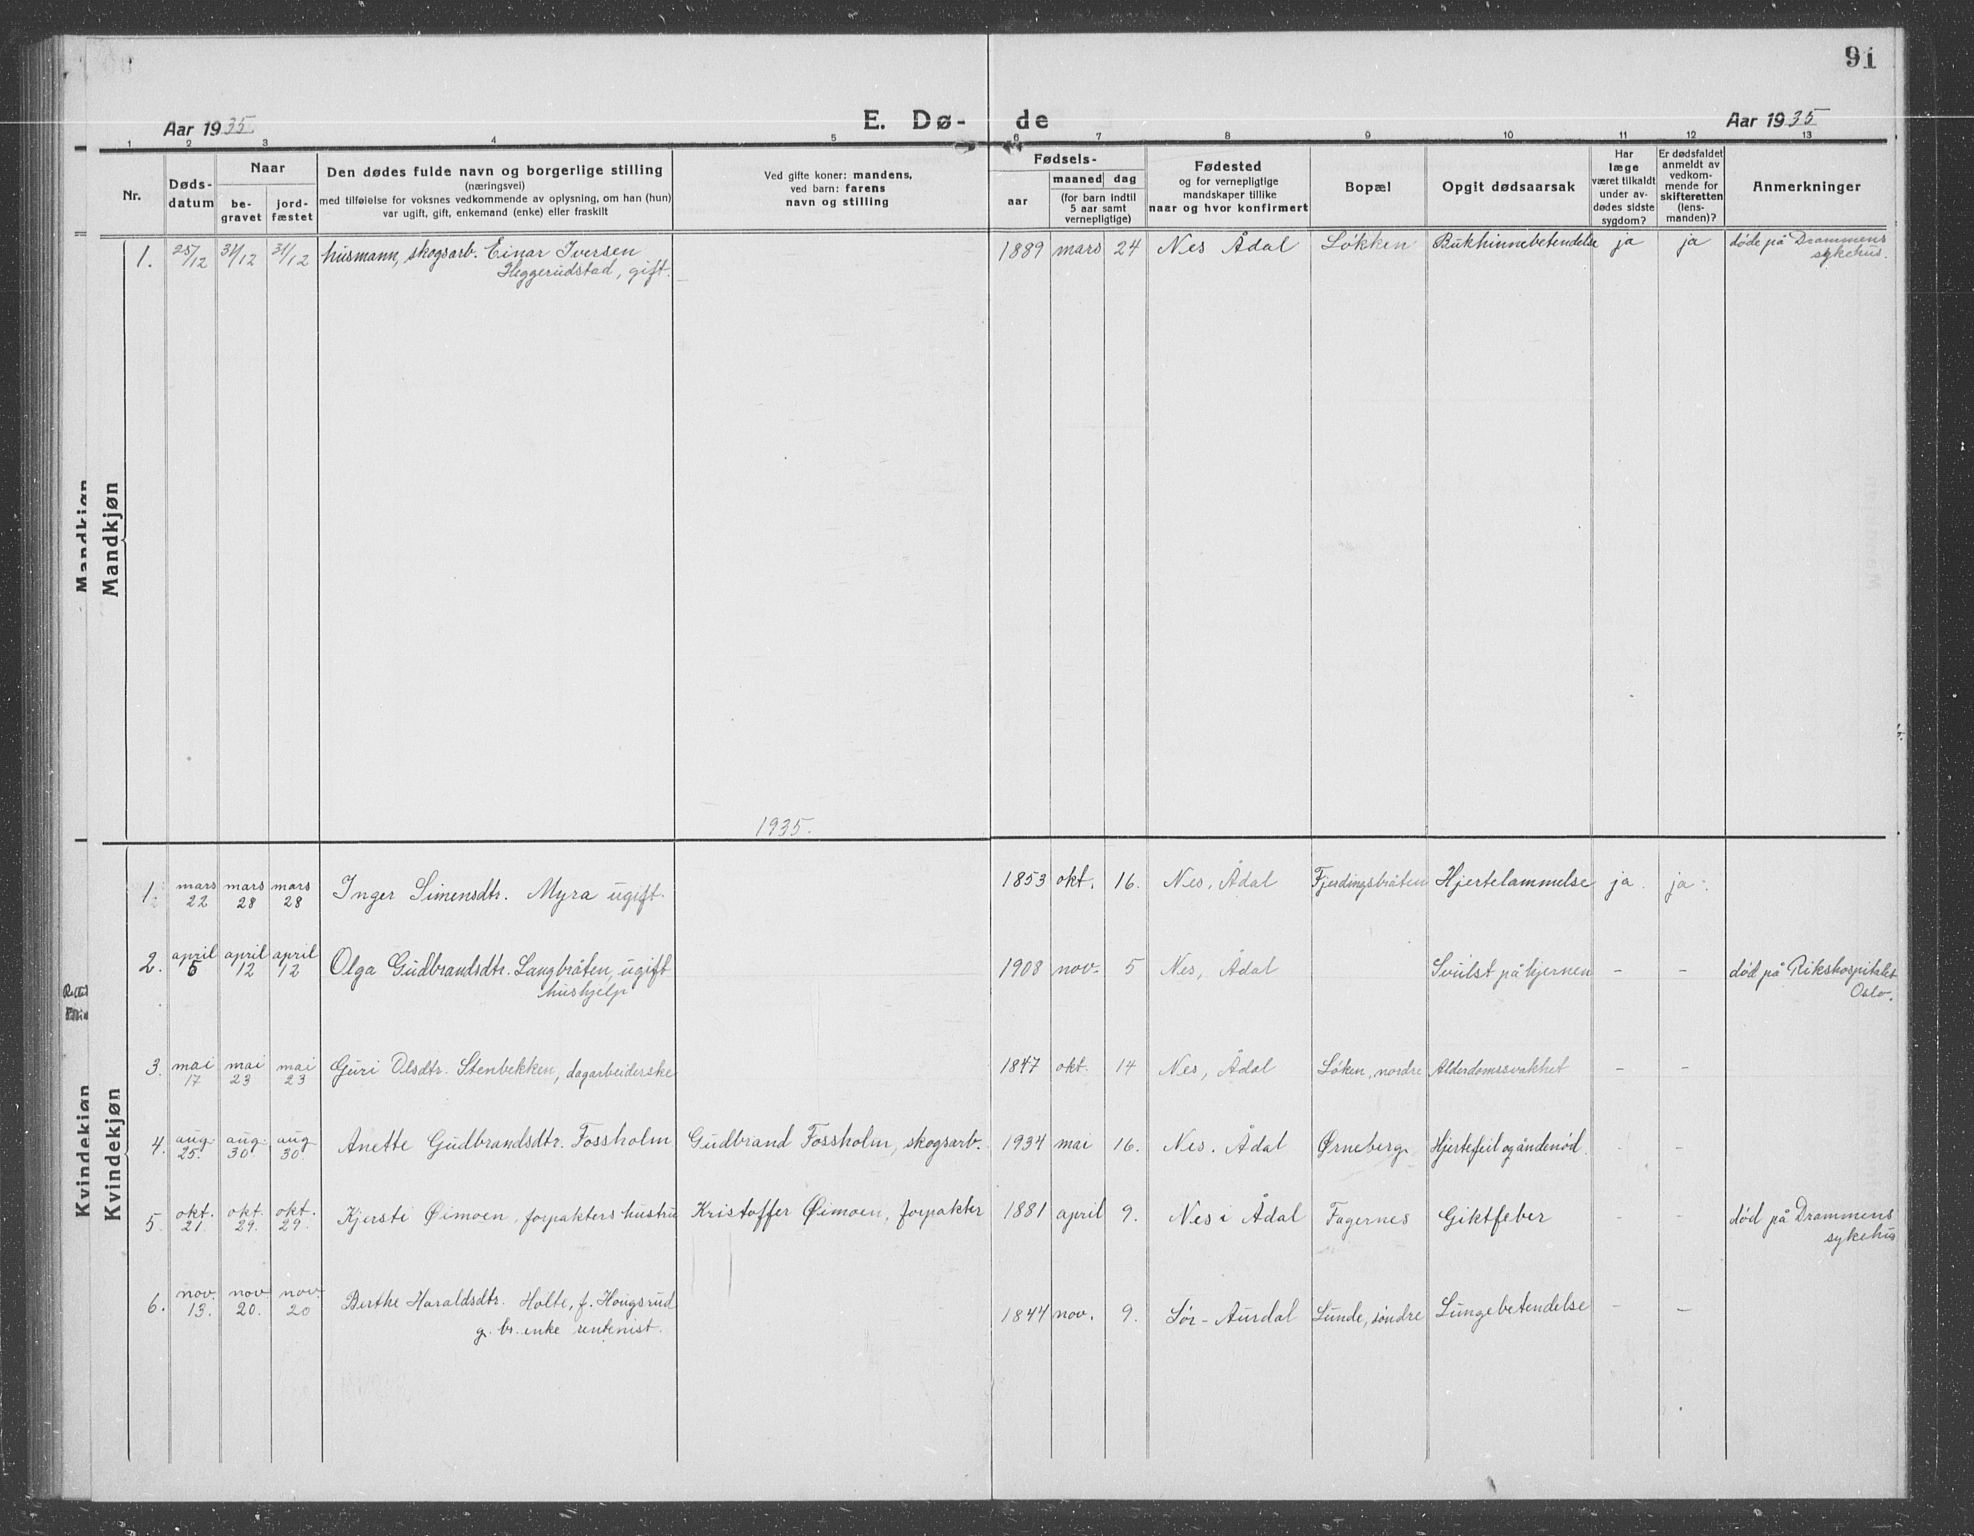 91
Aar 1935 E. Dø- de Aar 1935
1 2 3 4 5 6 7 8 9 10 11 12 13
Nr.
Døds-
datum
Naar
be-
gravet
jord-
fæstet
Den dødes fulde navn og borgerlige stilling
(næringsvei)
med tilføielse for voksnes vedkommende av oplysning, om han (hun)
var ugift, gift, enkemand (enke) eller fraskilt
Ved gifte koner: mandens,
ved barn: farens
navn og stilling
Fødsels-
aar
maaned dag
(for barn indtil
5 aar samt
vernepligtige)
Fødested
og for vernepligtige
mandskaper tillike
naar og hvor konfirmert
Bopæl
Opgit dødsaarsak
Har
læge
været tilkaldt
under av-
dødes sidste
sygdom?
Er dødsfaldet
anmeldt av
vedkom-
mende for
skifteretten
(lens-
manden)?
Anmerkninger
Mandkjøn
1. 25/12 31/12 31/12 husmann, skogsarb. Einar Iversen 1889 mars 24 Nes Ådal Løkken Bukhinnebetendelse ja ja døde på Drammens
Heggerudstad, gift. sykehus.
1935.
Kvindekjøn
1. mars mars mars Inger Simensdtr. Myra ugift. 1853 okt. 16. Nes, Ådal Fjerdingsbråten Hjertelammelse ja. ja.
22 28 28
2. april april april Olga Gudbrandsdtr. Langbråten, ugift 1908 nov. 5 Nes, Ådal Svulst på hjernen - - død på Rikshospitalet
5 12 12 hushjelp Oslo.
3. mai mai mai Guri Olsdtr. Stenbekken, dagarbeiderske 1847 okt. 14 Nes, Ådal Løken, nordre Alderdomssvakhet - -
17 23 23
4. aug. aug. aug Anette Gudbrandsdtr. Fossholm Gudbrand Fossholm, skogsarb. 1934 mai 16. Nes. Ådal Ørneberg. Hjertefeil og åndenød. - -
25. 30. 30.
5. okt. okt. okt. Kjersti Øimoen, forpakters hustru Kristoffer Øimoen, forpakter 1881 april 9. Nes i Ådal Fagernes Giktfeber - - død på Drammens
21. 29. 29. sykehus
6. nov. nov. nov. Berthe Haraldsdtr. Holte, f. Hougsrud 1844 nov. 9. Sør-Aurdal Lunde, søndre Lungebetendelse - -
13. 20. 20 g. br. enke rentenist.